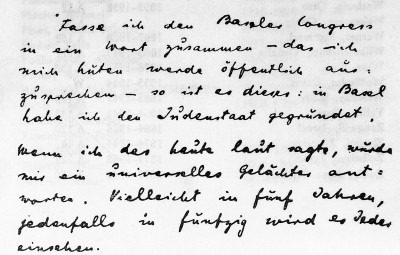 Fasse ich den Baseler Congress
in ein Wort zusammen – das ich
mich hüten werde öffentlich aus-
zusprechen – so ist es dieses: in Basel
habe ich den Judenstaat gegründet.
Wenn ich das heute laut sagte, würde
mir ein universelles Gelächter ant-
worten. Vielleicht in fünf Jahren,
jedenfalls in fünfzig wird es Jeder
einsehen.